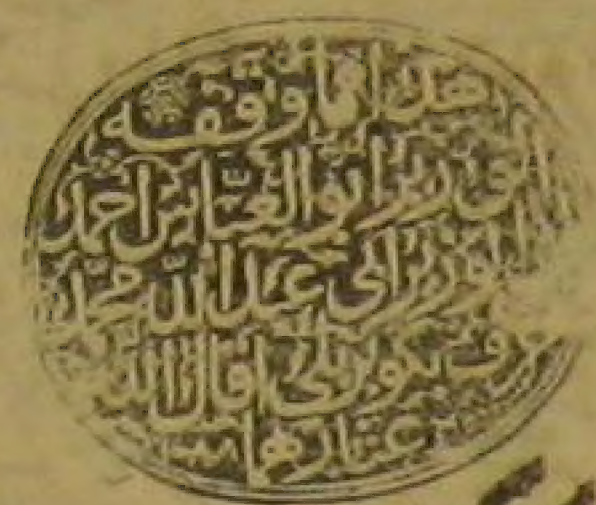 هذا مما وقفه
الوزير ابو العباس احمد
ابن الوزير ابي عبد الله محمد
عرف بكوپريلي اقال الله
عثارهما